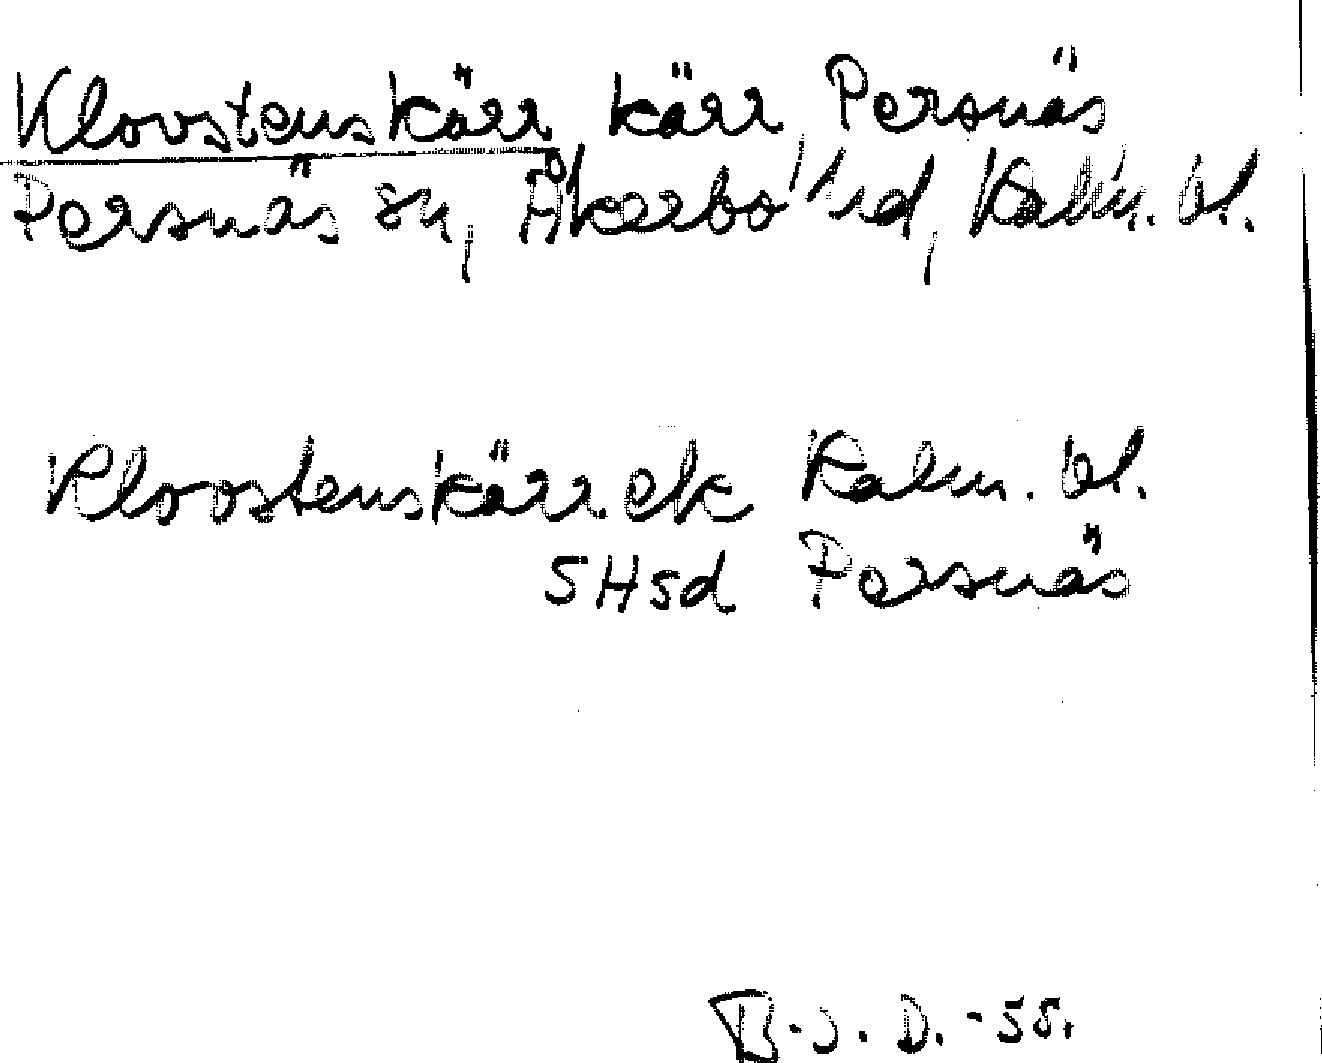 Klovstenskärr, kärr, Persnäs
Persnäs sn, Åkerbo hd, Kalm. öl.
Kloostenskärr ek Kalm. öl.
SHsd Persnäs
B.J.D. -58.